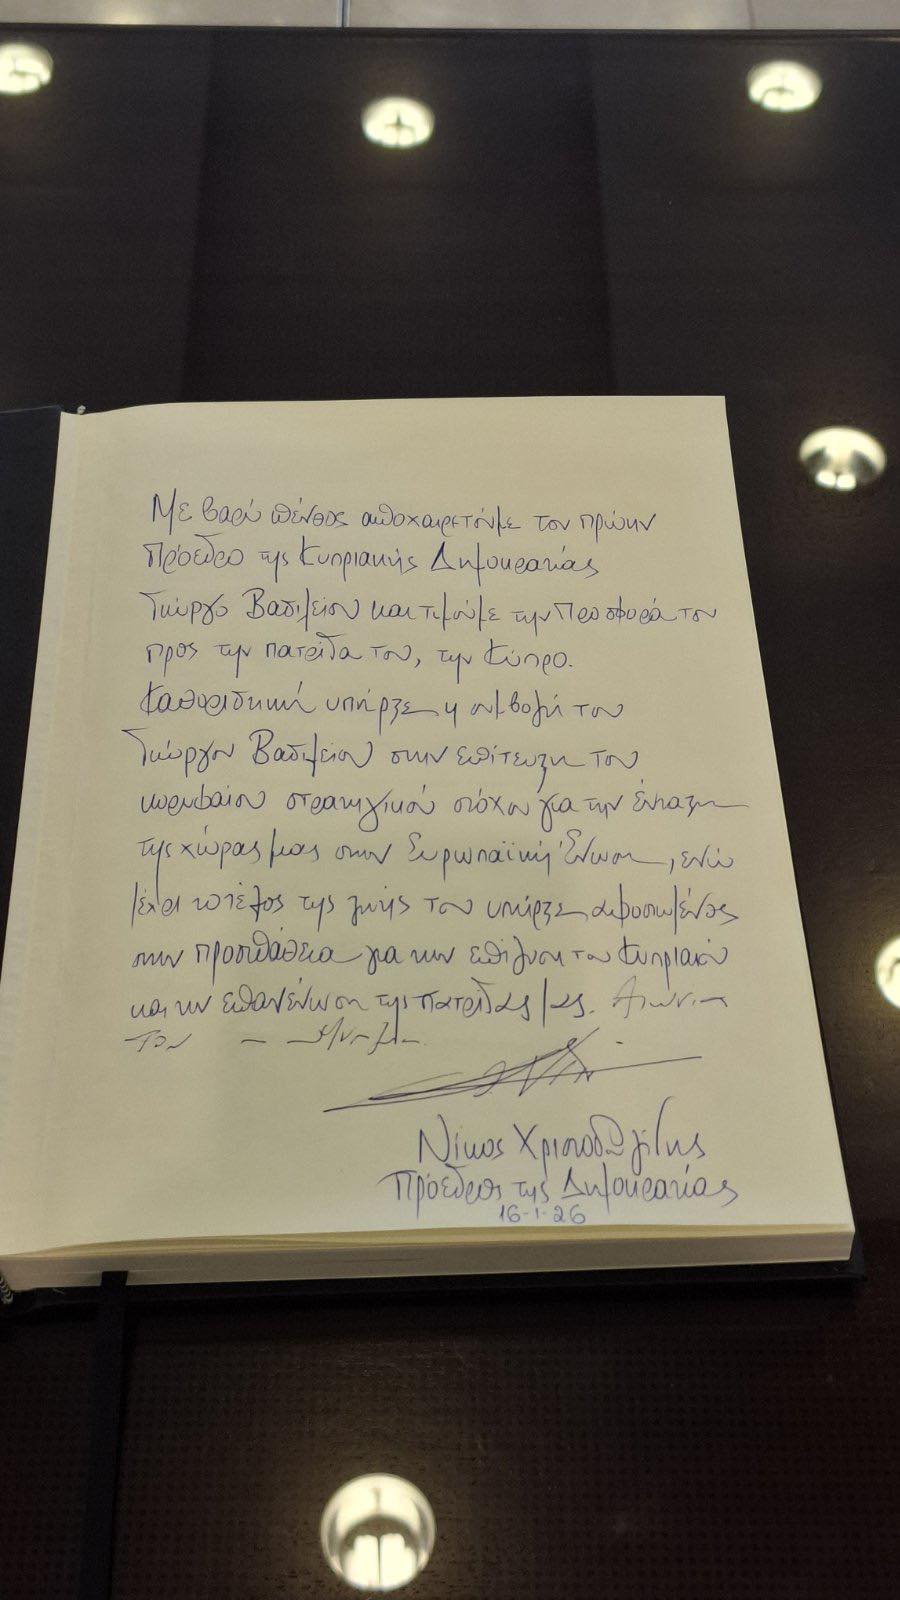 Με βαρύ πένθος αποχαιρετούμε τον πρώην
Πρόεδρο της Κυπριακής Δημοκρατίας
Γιώργο Βασιλείου και τιμούμε την Προσφορά του
προς την πατρίδα του, την Κύπρο.
Καθοριστική υπήρξε η συμβολή του
Γιώργου Βασιλείου στην επίτευξη του
κορυφαίου στρατηγικού στόχου για την ένταξη
της χώρας μας στην Ευρωπαϊκή Ένωση, ενώ
μέχρι το τέλος της ζωής του υπήρξε αφοσιωμένος
στην προσπάθεια για την επίλυση του Κυπριακού
και την επανένωση της πατρίδας μας. Αιωνία
του η μνήμη.
Νίκος Χριστοδουλίδης
Πρόεδρος της Δημοκρατίας
16-1-26